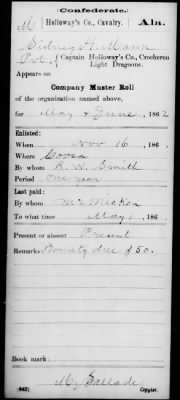 Confederate.
M Holloway's Co., Cavalry. Ala.
Sidney H. Mann
Pvt., Captain Holloway's Co., Crocheron
Light Dragoons.
Appears on
Company Muster Roll
of the organization named above,
for May & June, 1862
Enlisted:
When Nov 16, 186 .
Where Coosa
By whom R. W. Smith
Period one year
Last paid:
By whom McMicken
To what time May 1, 186
Present or absent Present
Remarks: Bounty due $50.
Book mark:
(642) Copyist.